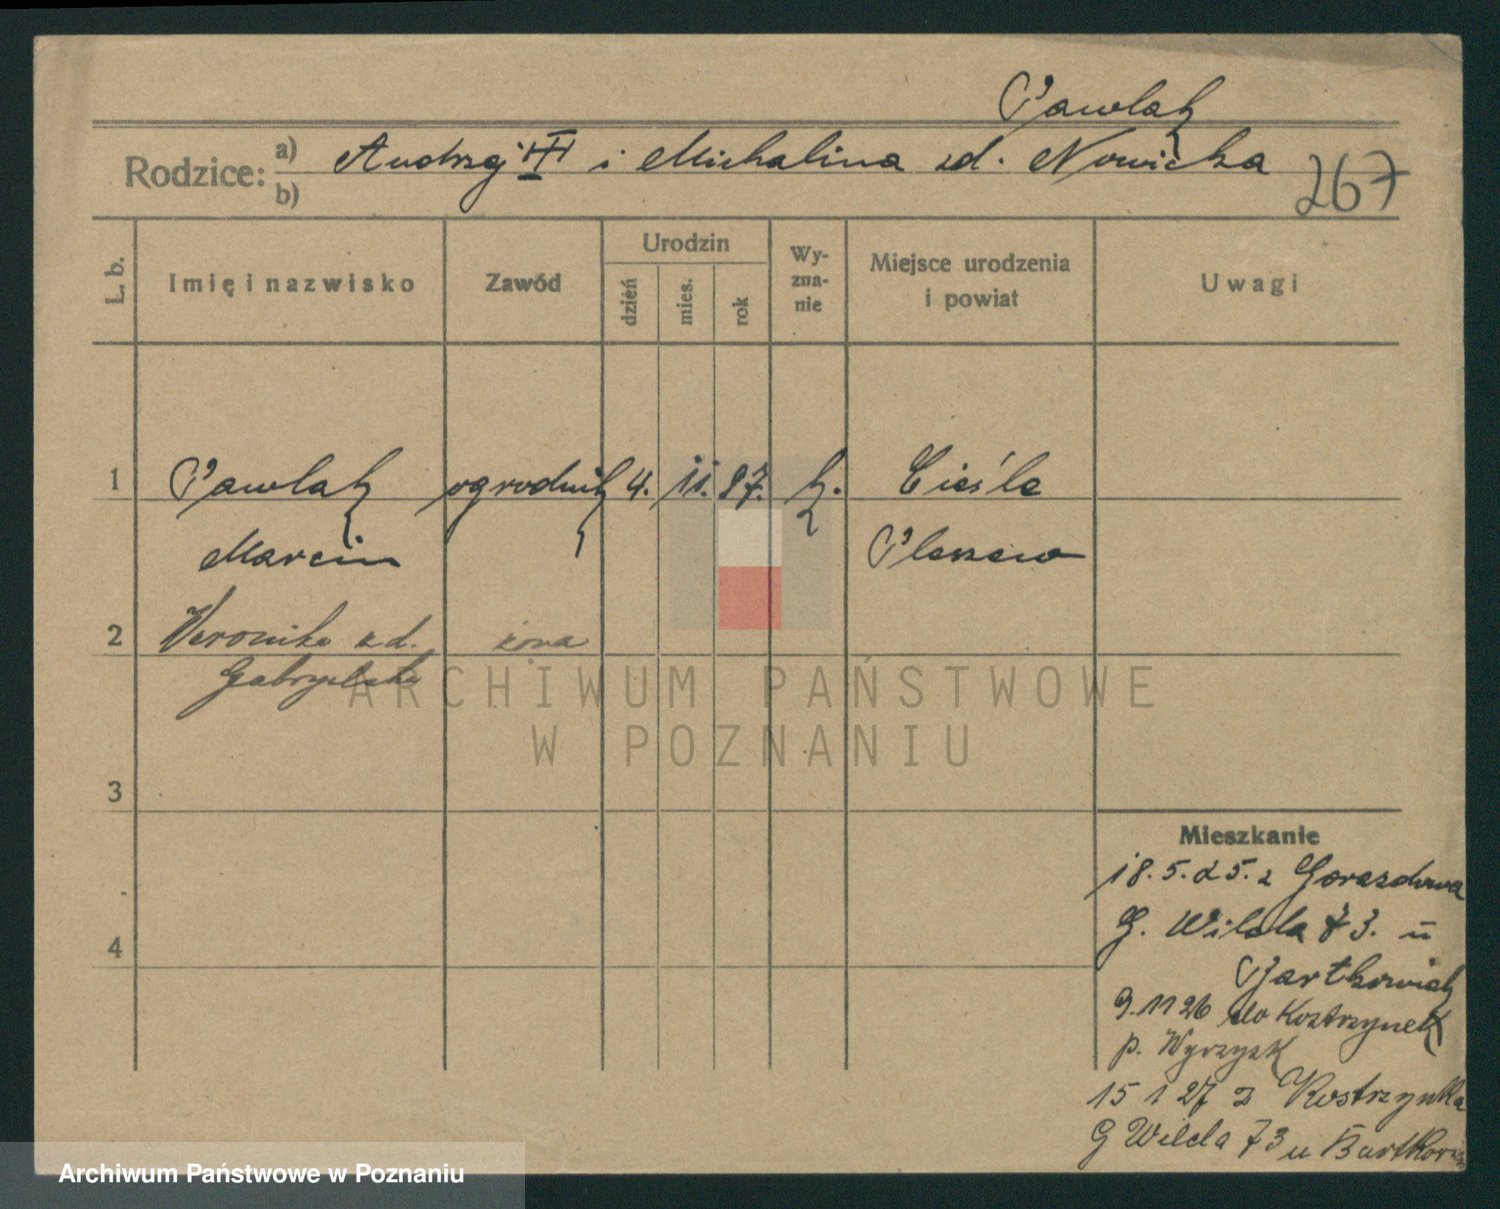 Pawlak
Rodzice: a) Andrzej III i Michalina zd. Nowicka
b)
267
L. b.
Imię i nazwisko
Zawód
Urodzin
dzień
mies.
rok
Wy-
zna-
nie
Miejsce urodzenia
i powiat
Uwagi
1 Pawlak ogrodnik 4. 11. 97. k. Cieśle
Marcin Pleszew
2 Weronika zd. żona
Gabryelska
3
4
Mieszkanie
18.5.25. z Gorazdowa
G. Wilda 73. u
Bartkowiak
9.11 26 do Kostrzynek
p. Wyrzysk
15 1 27 z Kostrzynka
G Wilda 73 u Bartkowi
ARCHIWUM PAŃSTWOWE
W POZNANIU
Archiwum Państwowe w Poznaniu